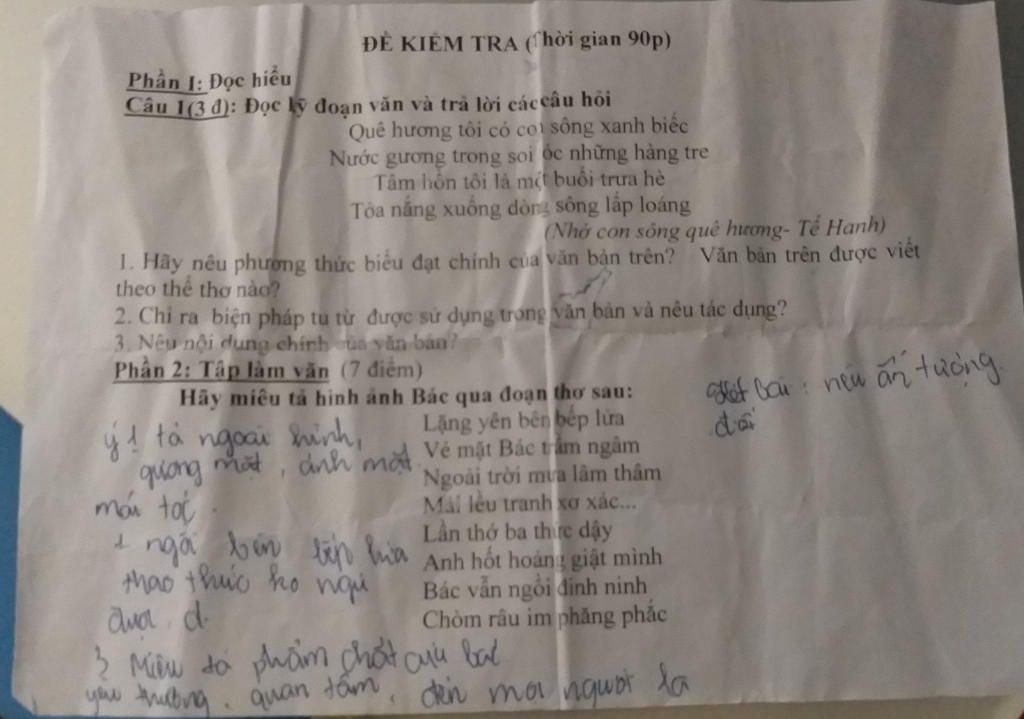 ĐỀ KIỂM TRA (Thời gian 90p)
Phần I: Đọc hiểu
Câu 1(3 đ): Đọc kỹ đoạn văn và trả lời các câu hỏi
Quê hương tôi có con sông xanh biếc
Nước gương trong soi óc những hàng tre
Tâm hồn tôi là một buổi trưa hè
Tỏa nắng xuống dòng sông lấp loáng
(Nhớ con sông quê hương- Tế Hanh)
1. Hãy nêu phương thức biểu đạt chính của văn bản trên? Văn bản trên được viết
theo thể thơ nào?
2. Chỉ ra biện pháp tu từ được sử dụng trong văn bản và nêu tác dụng?
3. Nêu nội dung chính của văn bản?
Phần 2: Tập làm văn (7 điểm)
Hãy miêu tả hình ảnh Bác qua đoạn thơ sau:
Lặng yên bên bếp lửa
Vẻ mặt Bác trầm ngâm
Ngoài trời mưa lâm thâm
Mái lều tranh xơ xác...
Lần thớ ba thức dậy
Anh hốt hoảng giật mình
Bác vẫn ngồi đinh ninh
Chòm râu im phăng phắc
bài : nêu ấn tượng
ý 1 tả ngoại hình,
gương mặt, ánh mắt
mái tóc.
ngồi bên bếp lửa
thao thức ko ngủ
3 Miêu tả phẩm chất của bác
yêu thương, quan tâm, đến mọi người